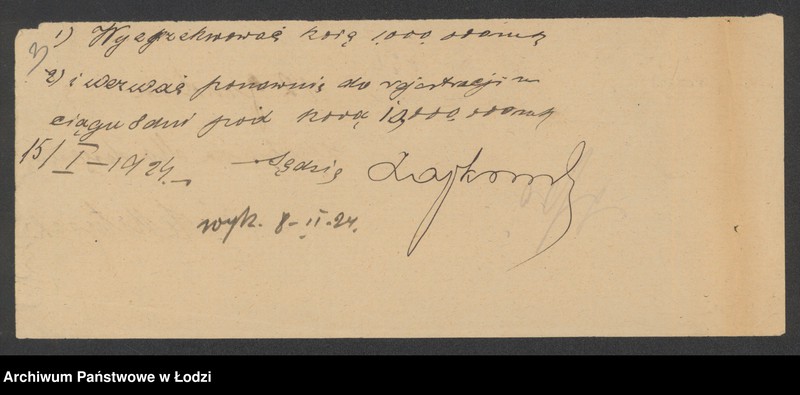 1) Wyegzekwować karę 1.000.000 mk
2) i wezwać ponownie do rejestracji w
ciągu 8 dni pod karą 10,000.000 mk
15/I – 1924. Sędzia
wyk. 8-II-24.
Archiwum Państwowe w Łodzi